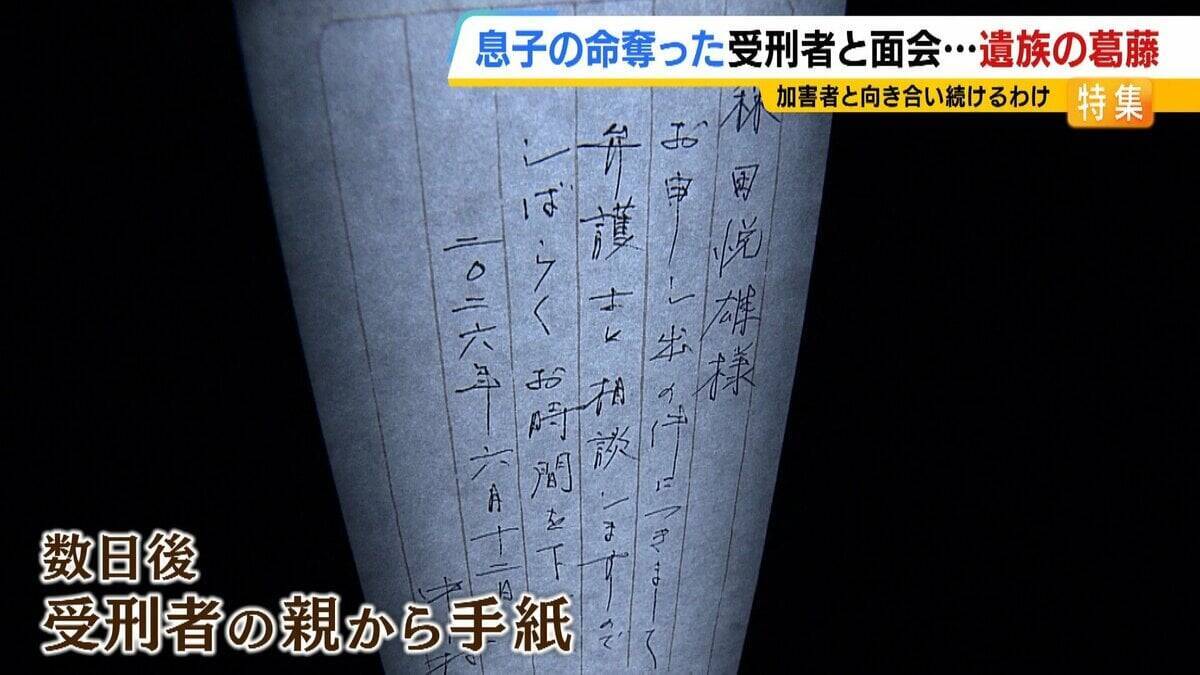 息子の命奪った受刑者と面会…遺族の葛藤
加害者と向き合い続けるわけ
特集
林田悦雄様
お申し出の件につきまして
弁護士と相談しますので
しばらくお時間を下
二〇二六年六月十二日
数日後
受刑者の親から手紙